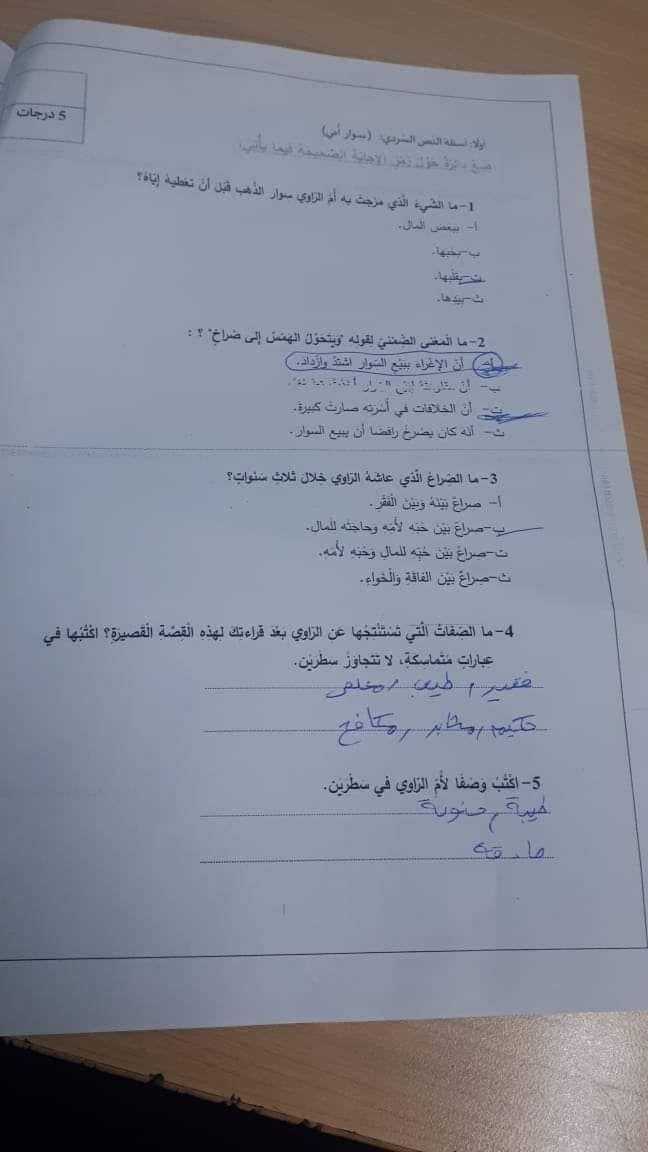 5 درجات
أولا: أسئلة النص السردي: (سوار أمي)
ضَعْ دائرةً حَوْلَ رَمْزِ الإجابَةِ الصَّحيحَةِ فيما يأتي:
1- ما الشَّيءُ الَّذي مَزَجَتْ به أمُّ الرّاوي سوار الذَّهب قَبْلَ أنْ تعطيهُ إيّاهُ؟
أ- ببعض المال.
ب- بحُبّها.
ت- بقَلْبِها.
ث- بيَدِها.
2- ما الْمَعْنى الضِّمْنيّ لِقولِه "وَيَتحَوّلُ الهَمْسُ إلى صُراخٍ" ؟ :
أ- أنّ الإغْراءَ بِبَيْعِ السّوارِ اشتدَّ وازْدادَ.
ب- أنّ السوار
ت- أنّ الخلافات في أُسْرَتِه صارت كبيرة.
ث- أنّه كان يصْرخُ رافضا أن يبيع السوار.
3- ما الصِّراعُ الّذي عاشَهُ الرّاوي خلال ثلاثِ سَنَواتٍ؟
أ- صِراعٌ بَيْنَهُ وَبَيْنَ الْفَقْرِ.
ب- صراعٌ بَيْنَ حُبّه لأُمّه وحاجتِه للمال.
ت- صراعٌ بَيْنَ حُبِّه للمالِ وَحُبّه لأُمّه.
ث- صِراعٌ بَيْنَ الفاقَةِ وَالْخَواءِ.
4- ما الصِّفاتُ الَّتي تَسْتَنْتِجُها عَنِ الرّاوي بَعْدَ قراءتِكَ لِهذِهِ الْقِصَّة الْقَصيرَةِ؟ اكْتُبْها في
عِباراتٍ مُتَماسِكَةٍ، لا تتجاوَزُ سطْرَيْن.
فقير , طيب , مخلص
حكيم , مثابر , مكافح
5- اكْتُبْ وَصْفًا لأُمّ الرّاوي في سَطْرَيْن.
طيبة , حنونة
صادقة